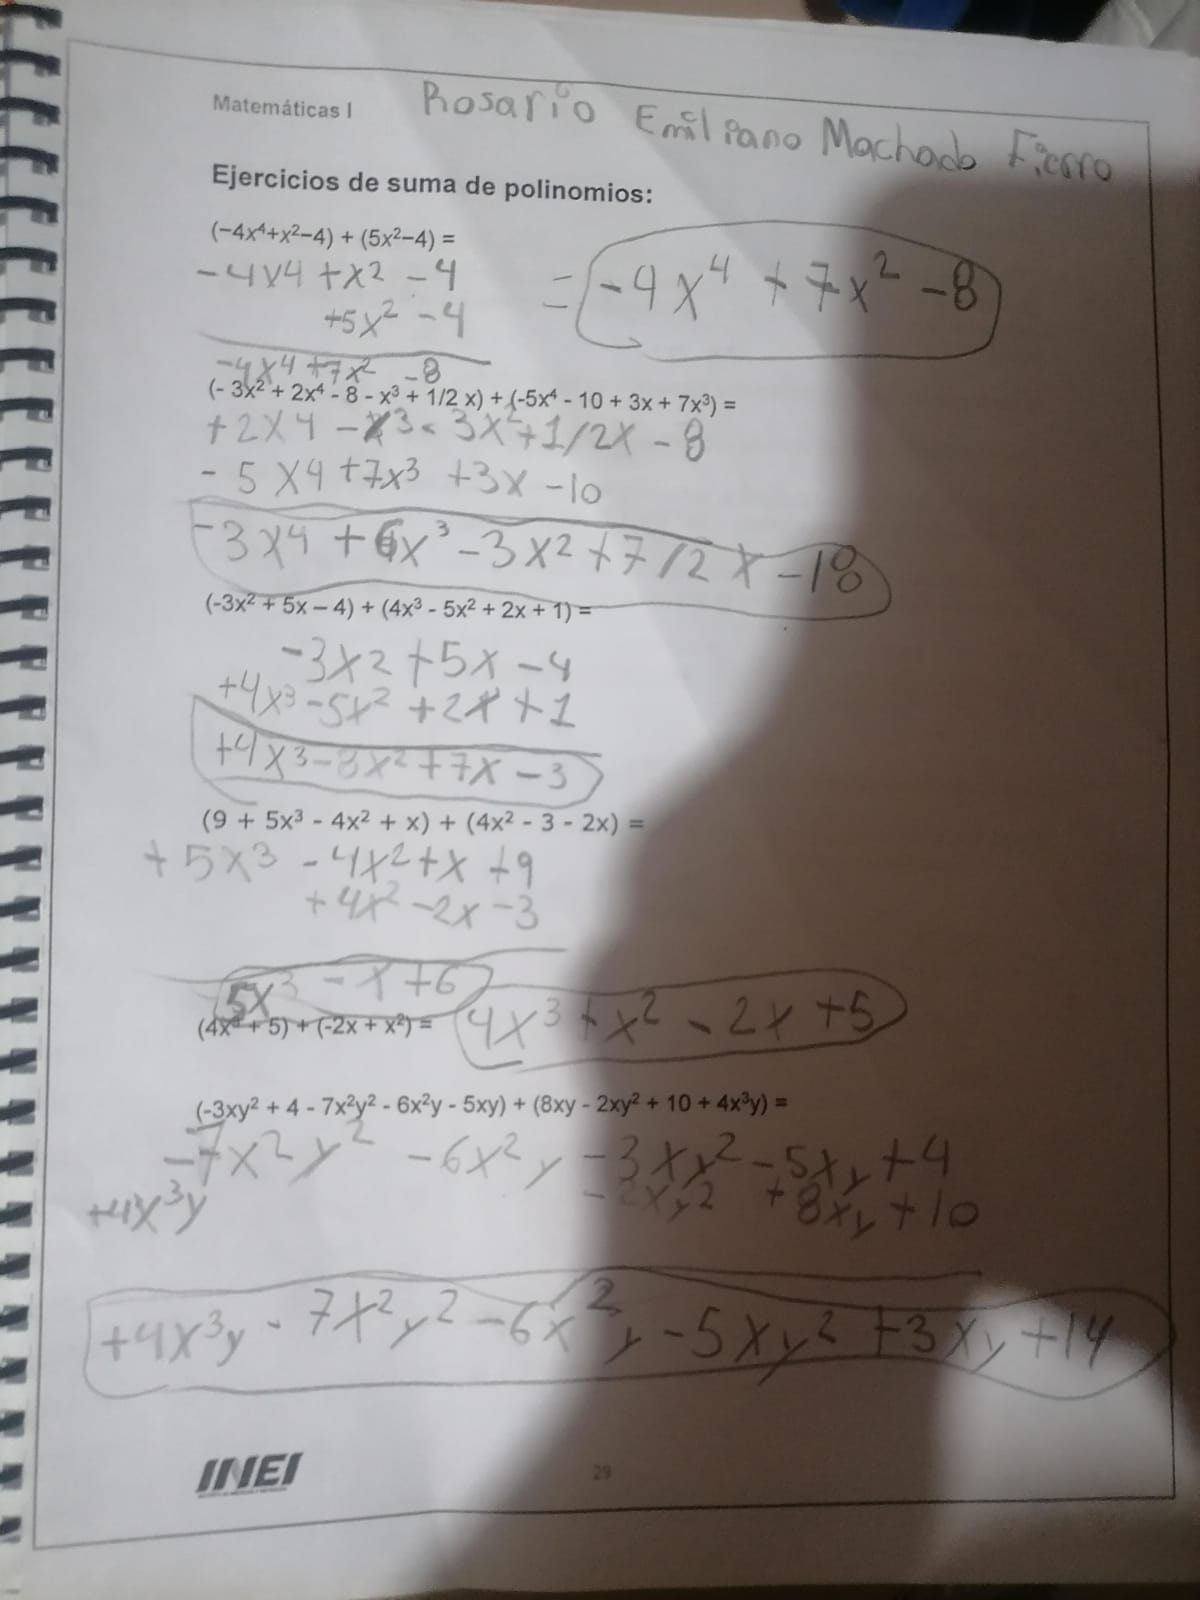 Matemáticas I Rosario Emiliano Machado Fierro
Ejercicios de suma de polinomios:
(−4x⁴+x²−4) + (5x²−4) =
-4x4 +x2 -4
+5x² -4
= -4x⁴ + 7x² -8
-4x4 +7x² -8
(- 3x² + 2x⁴ - 8 - x³ + 1/2 x) + (-5x⁴ - 10 + 3x + 7x³) =
+2x4 -x3 - 3x² +1/2x -8
-5x4 +7x³ +3x -10
-3x4 +6x³ -3x2 +7/2 x -18
(-3x² + 5x – 4) + (4x³ - 5x² + 2x + 1) =
-3x2 +5x -4
+4x3 -5x² +2x +1
+4x3 -8x² +7x -3
(9 + 5x³ - 4x² + x) + (4x² - 3 - 2x) =
+5x3 -4x2 +x +9
+4x² -2x -3
5x3 -x +6
(4x³ + 5) + (-2x + x²) = 4x3 +x² -2x +5
(-3xy² + 4 - 7x²y² - 6x²y - 5xy) + (8xy - 2xy² + 10 + 4x³y) =
-7x²y² -6x²y -3xy² -5xy +4
+4x³y -2xy2 +8xy +10
+4x³y -7x²y² -6x²y -5xy² +3xy +14
INEI
29